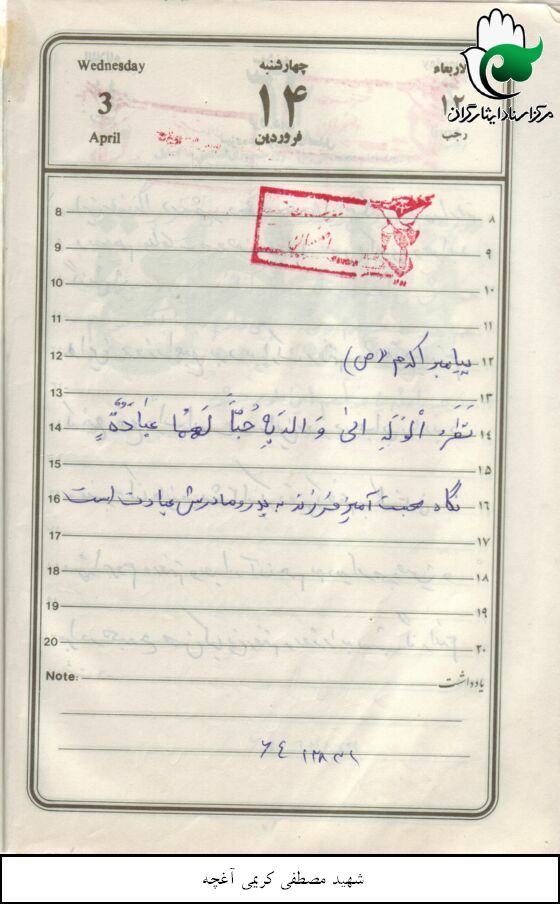 مرکز اسناد ایثارگران
Wednesday چهارشنبه الاربعاء
3 ۱۴ ۱۲
April فروردین رجب
8 ۸
9 ۹
10 ۱۰
11 ۱۱
12 پیامبر اکرم (ص) ۱۲
13 ۱۳
14 نَظَرُ الْوَلَدِ الیٰ وَالدَیهِ حُبّاً لَهُما عِبادَةٌ ۱۴
15 ۱۵
16 نگاه محبت آمیز فرزند به پدر و مادرش عبادت است ۱۶
17 ۱۷
18 ۱۸
19 ۱۹
20 ۲۰
Note: یادداشت
شهید مصطفی کریمی آغچه